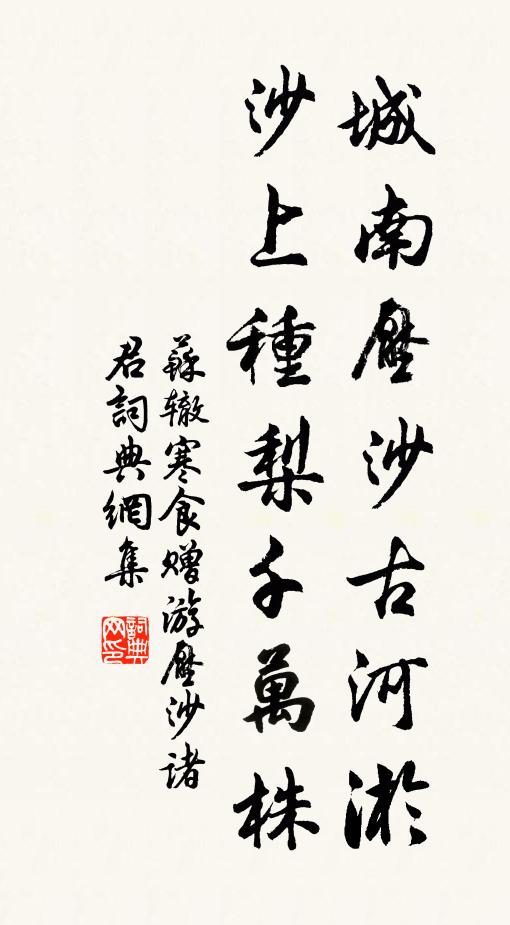 城南壓沙古河淤
沙上種梨千萬株
蘇辙寒食赠游壓沙诸
君詞典網集
詞典网印